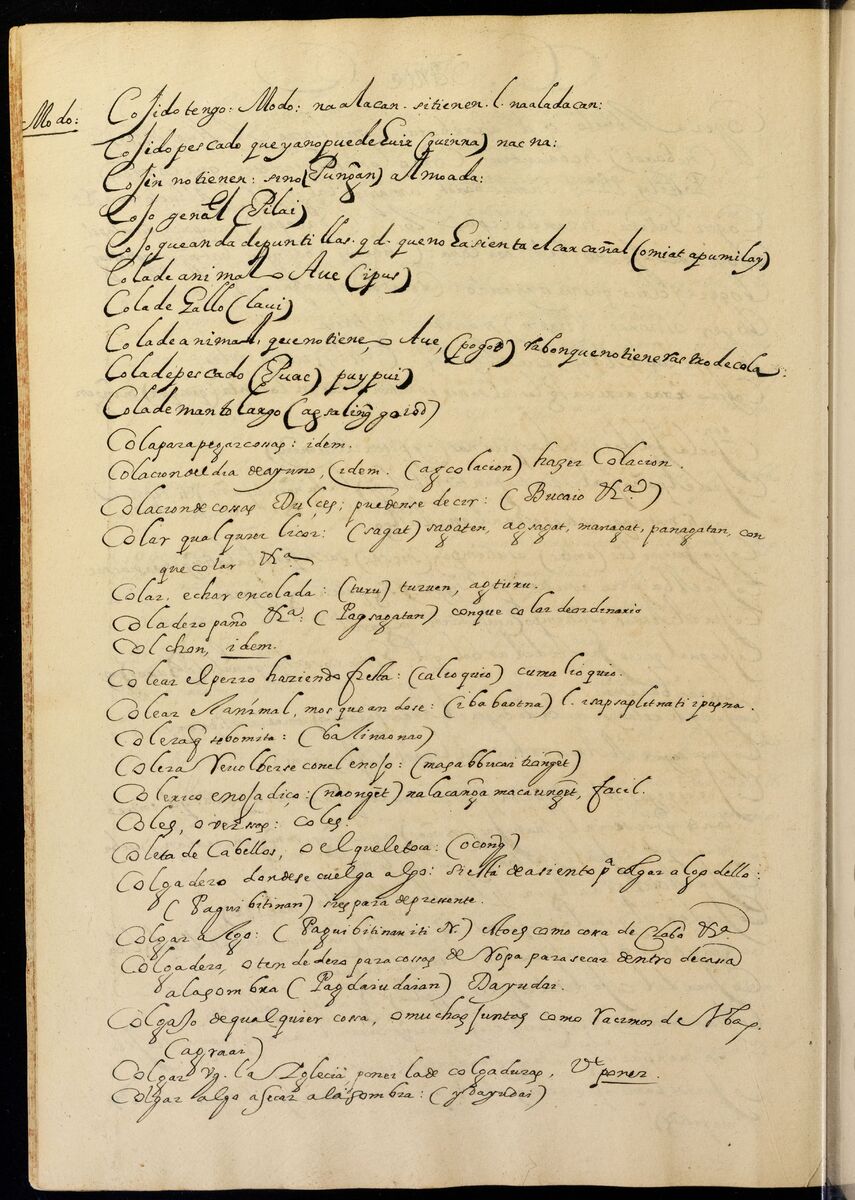 Modo:
Cosido tengo: Modo: na alacan. sitienen. l. naaladacan:
Cosido pescado que yano puede Euir (quinna) nac na:
Cosin notienen: sino (Pungan) almoada:
Coso genal (Pilai)
Coso que anda depuntillas. q d. queno Easienta el carcañal (omiat apumilay)
Colade animal o Aue (ipus)
Colade Gallo (laui)
Colade animal, que no tiene, o Aue, (pogod) rabon que no tiene rastro de cola:
Colade pescado (Puac) puypui)
Colade manto largo (agsaling goiod)
Cola para pegar cossas: idem.
Colacion del dia de ayuno, (idem. (agcolacion) hazer Colacion.
Colacion de cossas Dulçes; puedense decir: (Bucaio &ra)
Colar qual quier licor: (sagat) sagàten, agsagat, managat, panagatan, con
que colar &ra
Colar. echar en colada: (turu) turuen, agturu.
Coladero paño &ra: (Pagsagatan) con que colar de ordinario
Colchon, idem.
Colear el perro haziendo fiesta: (caleoquio) cumalioquio.
Colear Ranimal, mosqueandose: (ibabaotna) l. isapsaplitnati ipusna.
Colera q se bomita: (balinaonao)
Colera Revolberse con el enojo: (magabbucai tianget)
Colerico enojadiço: (naonget) nalacanga macaunget, facil.
Coles, o versas: coles
Coleta de Cabellos, o el que le toca: (ocong)
Colgadero donde se cuelga algo: si està de asiento pa colgar algo dello:
(Paguibitinan) si es para depresente.
Colgar algo: (Paguibitinan iti N.) Esto es como cosa de Clabo &ra
Colgadero, o tendedero para cossas de Ropa para secar dentro decassa
ala sombra (Pagdaiudaian) Dayudai.
Colgajo de qual quier cossa, o muchos Juntos como racimos de Vbas.
(agraai)
Colgar vg. la Yglecia ponerla de colgaduras, Vt poner.
Colgar algo a secar ala sombra: (ydayudai)